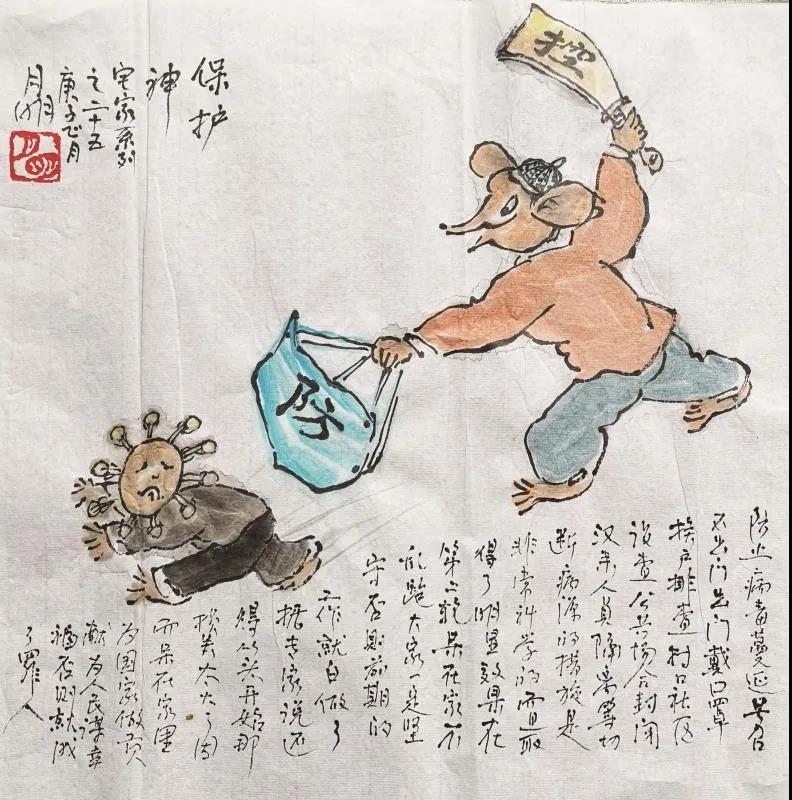 保护
神
宅家系列
之二十五
庚子正月
控
防
防止病毒蔓延号召
不出门出门戴口罩
挨户排查村口社区
设查公共场合封闭
汉来人员隔离等切
断病源的措施是
非常科学的而且取
得了明显效果在
第二轮呆在家不
乱跑大家一定坚
守否则前期的
工作就白做了
据专家说还
得从头开始那
损失太大了因
而呆在家里
为国家做贡
献为人民谋幸
福否则就成
了罪人